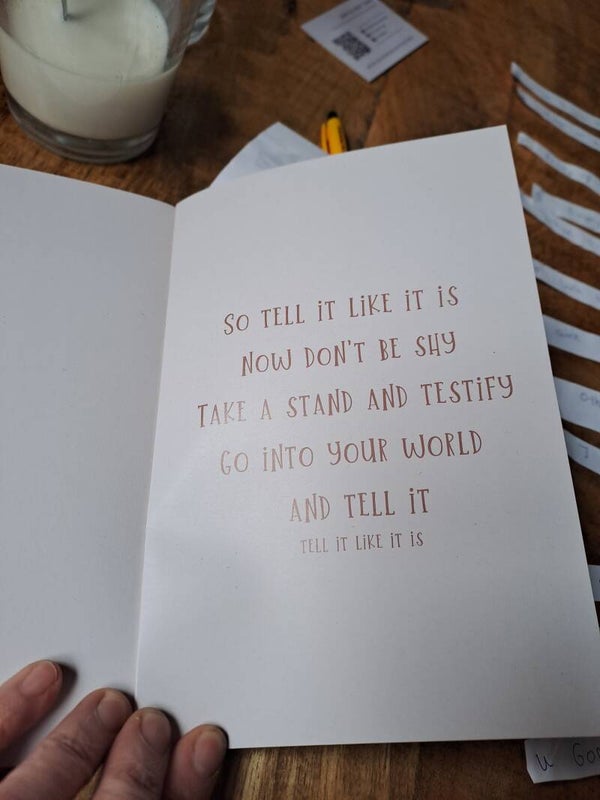 SO TELL IT LIKE IT IS
NOW DON'T BE SHY
TAKE A STAND AND TESTIFY
GO INTO YOUR WORLD
AND TELL IT
TELL IT LIKE IT IS